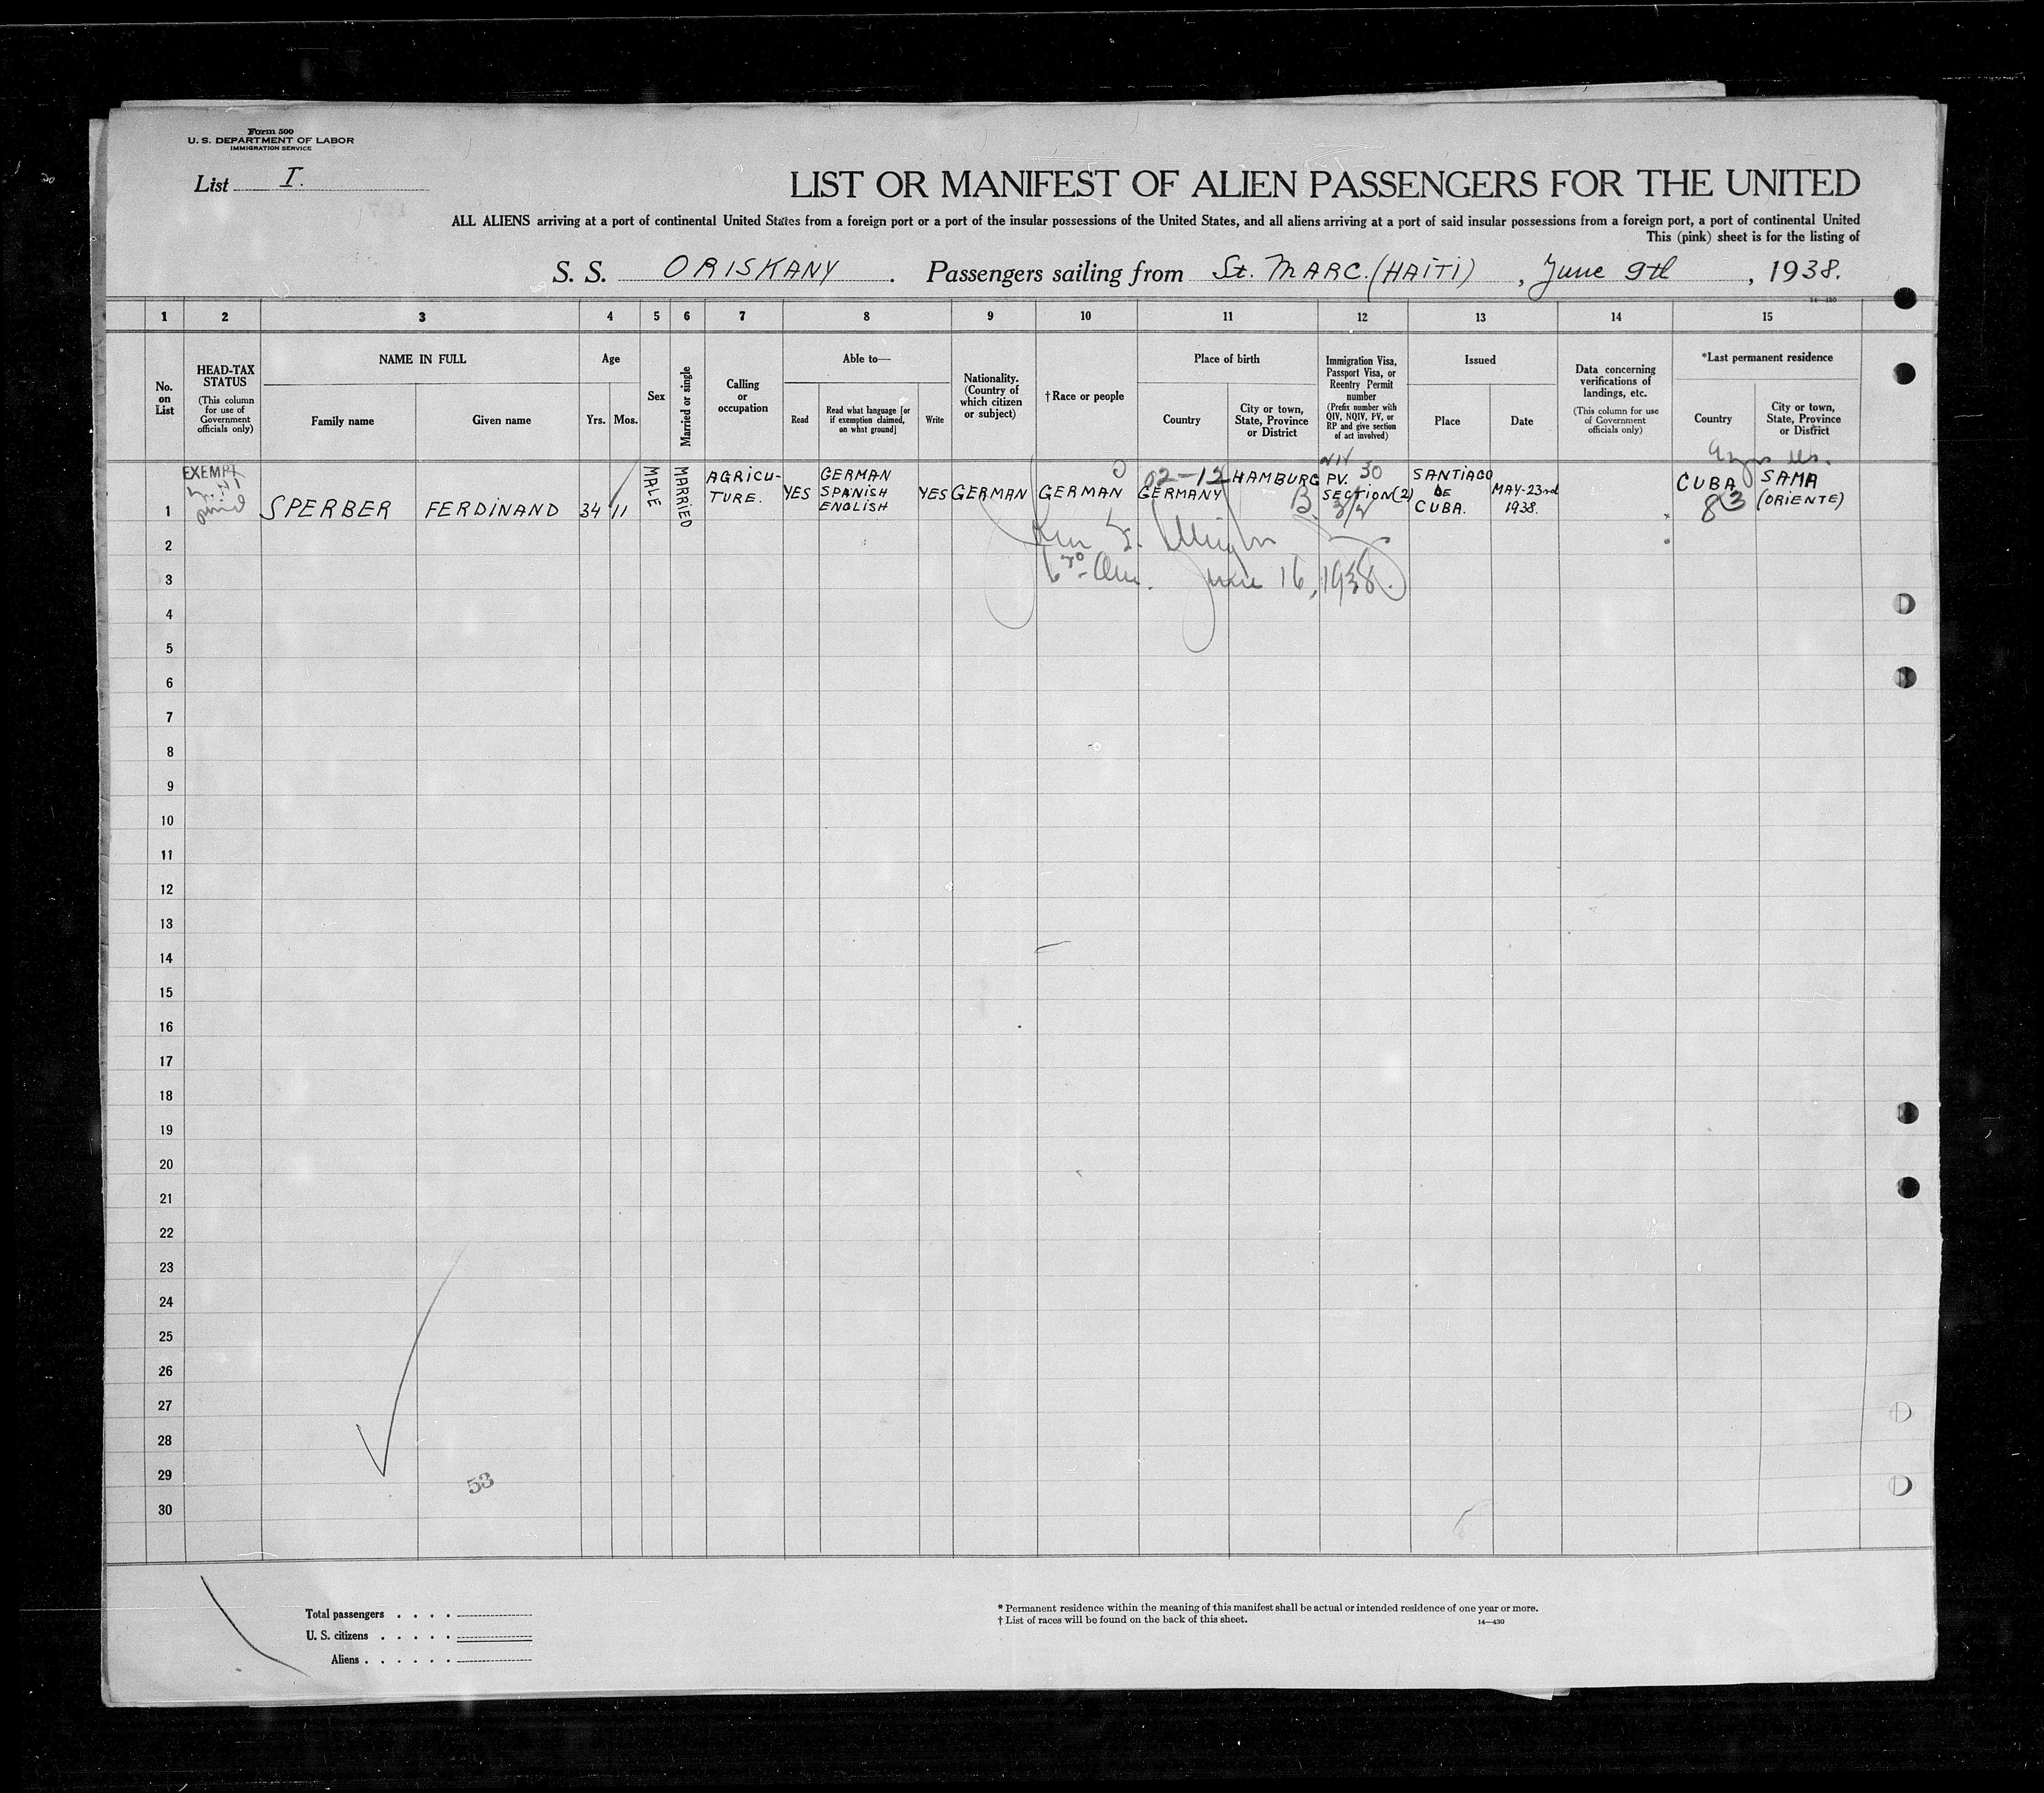 Form 500
U. S. DEPARTMENT OF LABOR
IMMIGRATION SERVICE
List I.
LIST OR MANIFEST OF ALIEN PASSENGERS FOR THE UNITED
ALL ALIENS arriving at a port of continental United States from a foreign port or a port of the insular possessions of the United States, and all aliens arriving at a port of said insular possessions from a foreign port, a port of continental United
This (pink) sheet is for the listing of
S. S. ORISKANY. Passengers sailing from St. MARC. (HAITI), June 9th, 1938.
14—430
1 2 3 4 5 6 7 8 9 10 11 12 13 14 15
No. on List
HEAD-TAX STATUS
(This column for use of Government officials only)
NAME IN FULL
Family name
Given name
Age
Yrs.
Mos.
Sex
Married or single
Calling or occupation
Able to—
Read
Read what language [or if exemption claimed, on what ground]
Write
Nationality. (Country of which citizen or subject)
† Race or people
Place of birth
Country
City or town, State, Province or District
Immigration Visa, Passport Visa, or Reentry Permit number
(Prefix number with QIV, NQIV, PV, or RP and give section of act involved)
Issued
Place
Date
Data concerning verifications of landings, etc.
(This column for use of Government officials only)
*Last permanent residence
Country
City or town, State, Province or District
1
EXEMPT
SPERBER
FERDINAND
34
11
MALE
MARRIED
AGRICU-
TURE.
YES
GERMAN
SPANISH
ENGLISH
YES
GERMAN
GERMAN
02-12
GERMANY
HAMBURG
B.
PV. 30
SECTION(2)
3/2
SANTIAGO
DE
CUBA.
MAY-23rd
1938.
CUBA
83
SAMA
(ORIENTE)
2
3
June 16, 1938.
4
5
6
7
8
9
10
11
12
13
14
15
16
17
18
19
20
21
22
23
24
25
26
27
28
29
53
30
Total passengers . . . .
U. S. citizens . . . . .
Aliens . . . . . .
* Permanent residence within the meaning of this manifest shall be actual or intended residence of one year or more.
† List of races will be found on the back of this sheet.
14—430